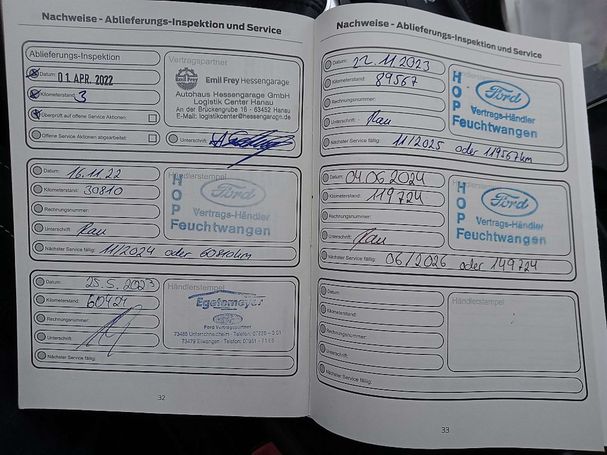 Nachweise - Ablieferungs-Inspektion und Service
Ablieferungs-Inspektion
Datum: 01. APR. 2022
Kilometerstand: 3
Überprüft auf offene Service Aktionen
Offene Service Aktionen abgearbeitet:
Vertragspartner
Emil Frey Hessengarage
Autohaus Hessengarage GmbH
Logistik Center Hanau
An der Brückengrube 16 - 63452 Hanau
E-Mail: logistikcenter@hessengarage.de
Unterschrift:
Datum: 16.11.22
Kilometerstand: 30810
Rechnungsnummer:
Unterschrift:
Nächster Service fällig: 11/2024 oder
Händlerstempel
HOP
Ford
Vertrags-Händler
Feuchtwangen
Datum: 25.5.2023
Kilometerstand: 60424
Rechnungsnummer:
Unterschrift:
Nächster Service fällig:
Händlerstempel
Ford Vertragspartner
32
Nachweise - Ablieferungs-Inspektion und Service
Datum: 22.11.2023
Kilometerstand: 89567
Rechnungsnummer:
Unterschrift:
Nächster Service fällig: 11/2025 oder 119567km
HOP
Ford
Vertrags-Händler
Feuchtwangen
Datum: 04.06.2024
Kilometerstand: 119724
Rechnungsnummer:
Unterschrift:
Nächster Service fällig: 06/2026 oder 149724
Händlerstempel
HOP
Ford
Vertrags-Händler
Feuchtwangen
Datum:
Kilometerstand:
Rechnungsnummer:
Unterschrift:
Nächster Service fällig:
Händlerstempel
33